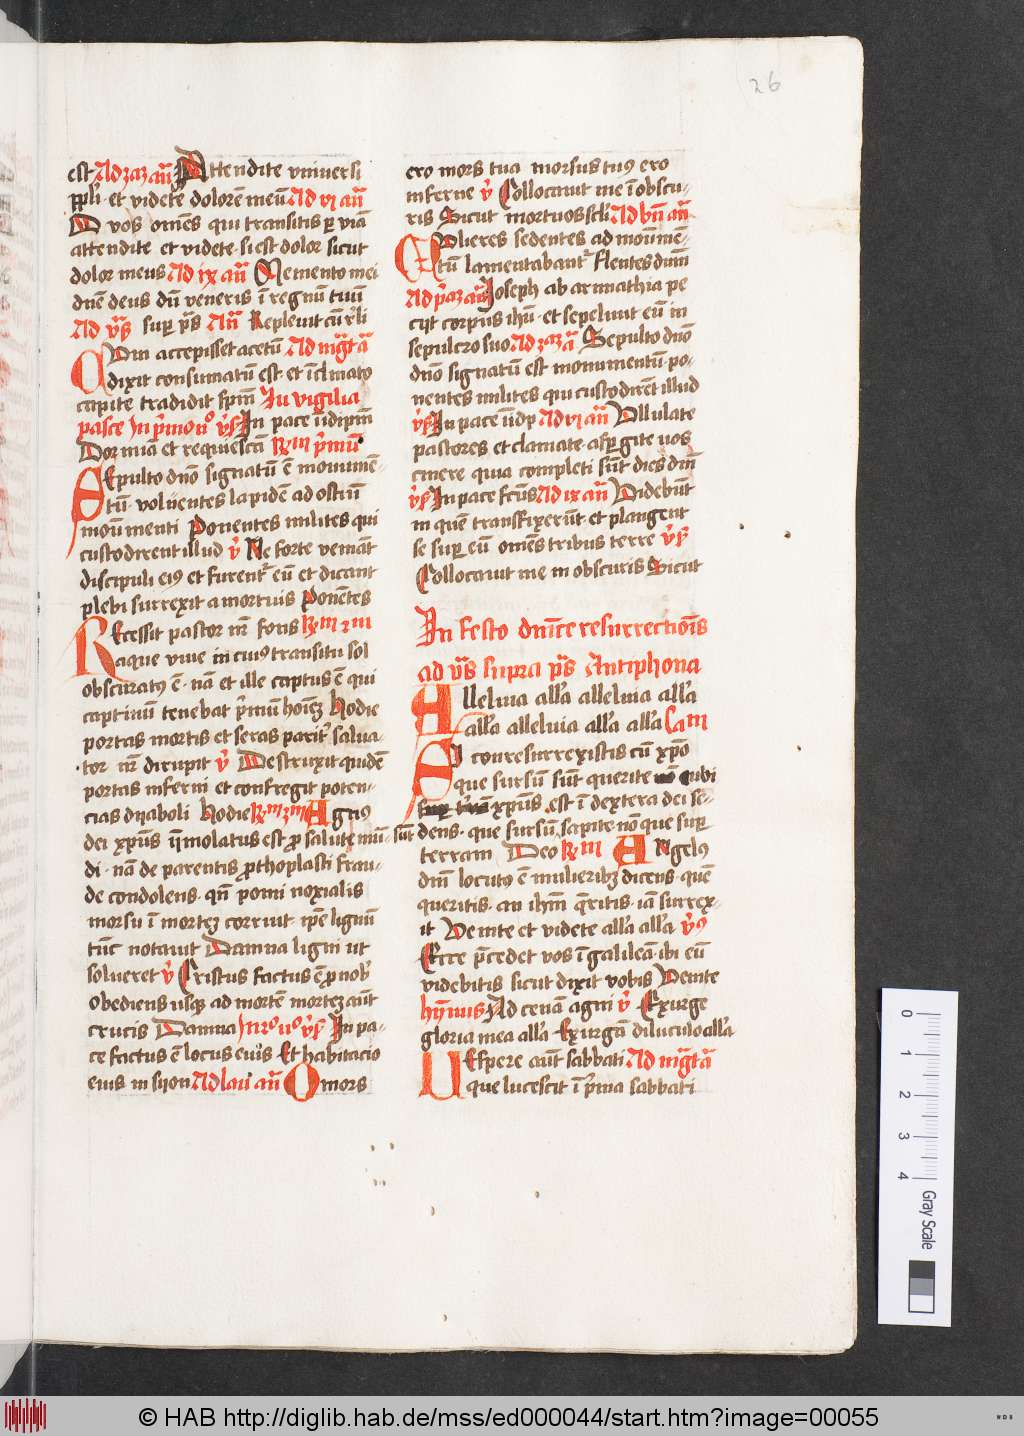 26
est Ad 3az an̄ Attendite vniuersi
ppl'i · et videte dolorē meū Ad vi an̄
O vos om̄es qui transitis p viā
attendite et videte · si est dolor sicut
dolor meus Ad ix an̄ Memento mei
dn̄e deus dū veneris ī regnū tuū
Ad vs̄ sup ps̄ An̄ Repleuit cū r̄li
Cum accepisset acetū Ad mgt̄ ā
dixit consumatū est · et īclinato
capite tradidit spm̄ In vigilia
pasce In p̄mo noº vs̄ In pace īidipm̄
Dormiā et requiescā R̄m p̄mū
Sepulto dn̄o signatū ē monumē-
tū · voluentes lapidē ad ostiū
monūmenti Ponentes milites qui
custodirent illud v̄ Ne forte veniāt
discipuli eiꝰ et furent' eū et dicant
plebi surrexit a mortuis Ponētes
Recessit pastor nr̄ fons R̄m 2m
aque viue in cuiꝰ transitu sol
obscuratꝰ ē · nā et ille captus ē qui
captiuū tenebat p̄mū hoīeȝ Hodie
portas mortis et seras parit' salua-
tor nr̄ dirupit v̄ Destruxit quidē
portas inferni et confregit poten-
cias dyaboli Hodie R̄m 3m Agnꝰ
dei xp̄us īmolatus est p salute mū-
di · nā de parentis pthoplasti frau-
de condolens · qn̄ pomi noxialis
morsu ī morteȝ corruit · ip̄e lignū
tūc notauit Damna ligni ut
solueret v̄ Cristus factus ē p nob'
obediens usqȝ ad mortē morteȝ aūt
crucis Damna In 2º nº vs̄ In pa-
ce factus ē locus eius Et habitacio
eius in syon Ad lau an̄ O mors
ero mors tua morsus tuꝰ ero
inferne v̄ Collocauit me ī obscu-
ris Sicut mortuos scl'i Ad bn̄ an̄
Mulieres sedentes ad monūmē-
tū lamentabant' flentes dūm
Ad p̄az an̄ Joseph ab arimathia pe
cyt corpus ihū · et sepeliuit eū in
sepulcro suo Ad 3az ā Sepulto dn̄o
dn̄o signatū est monumentū · po-
nentes milites qui custodirēt illud
vs̄ In pace īidp Ad vi an̄ Vllulate
pastores et clamate · aspgite vos
cinere quia completi sūt dies dn̄i
vs̄ In pace fcūs Ad ix an̄ Videbūt
in quē transfixerūt · et plangent
se sup eū om̄es tribus terre vs̄
Collocauit me in obscuris Sicut
In festo dn̄ice resurrectiōis
ad vs̄ supra ps̄ Antiphona
Alleluia all'a alleluia all'a
all'a alleluia all'a all'a Cam
Si conresurrexistis cū xp̄o
que sursū sūt querite ubi
xp̄us est ī dextera dei se-
sūt dens · que sursū sapite nō que sup
terram Deo R̄m Angelꝰ
dn̄i locutꝰ ē mulieribȝ dicens · quē
queritis · an ihm̄ q̄ritis · iā surrex-
it Venite et videte all'a all'a vs̄
Ecce p̄cedet vos ī galileā · ibi eū
videbitis sicut dixit vobis Venite
hȳnus Ad cenā agni v̄ Exurge
gloria mea all'a Exurgā diluculo all'a
Uespere aūt sabbati Ad mgt̄ ā
que lucescit ī p̄ma sabbati
0 1 2 3 4
Gray Scale
© HAB http://diglib.hab.de/mss/ed000044/start.htm?image=00055